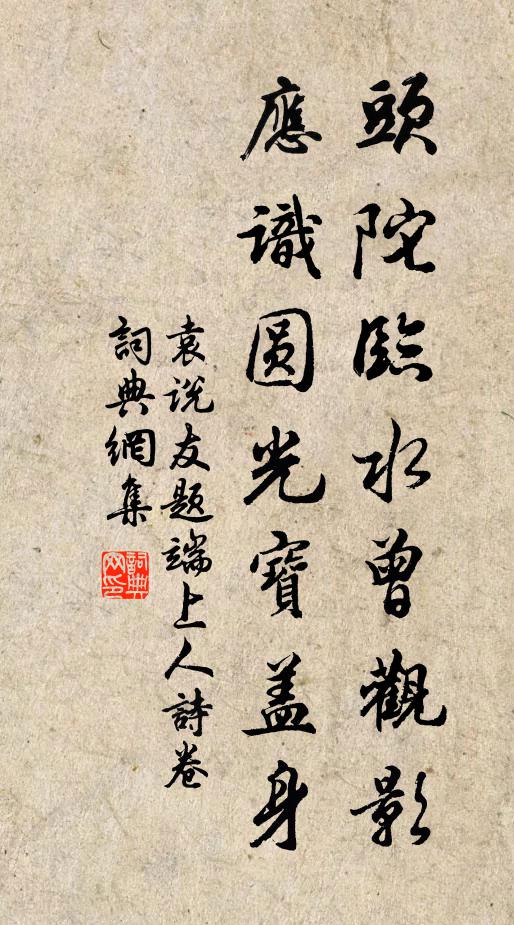 頭陀臨水曾觀影
應識圆光寶盖身
袁説友題端上人詩卷
詞典網集
詞典网印